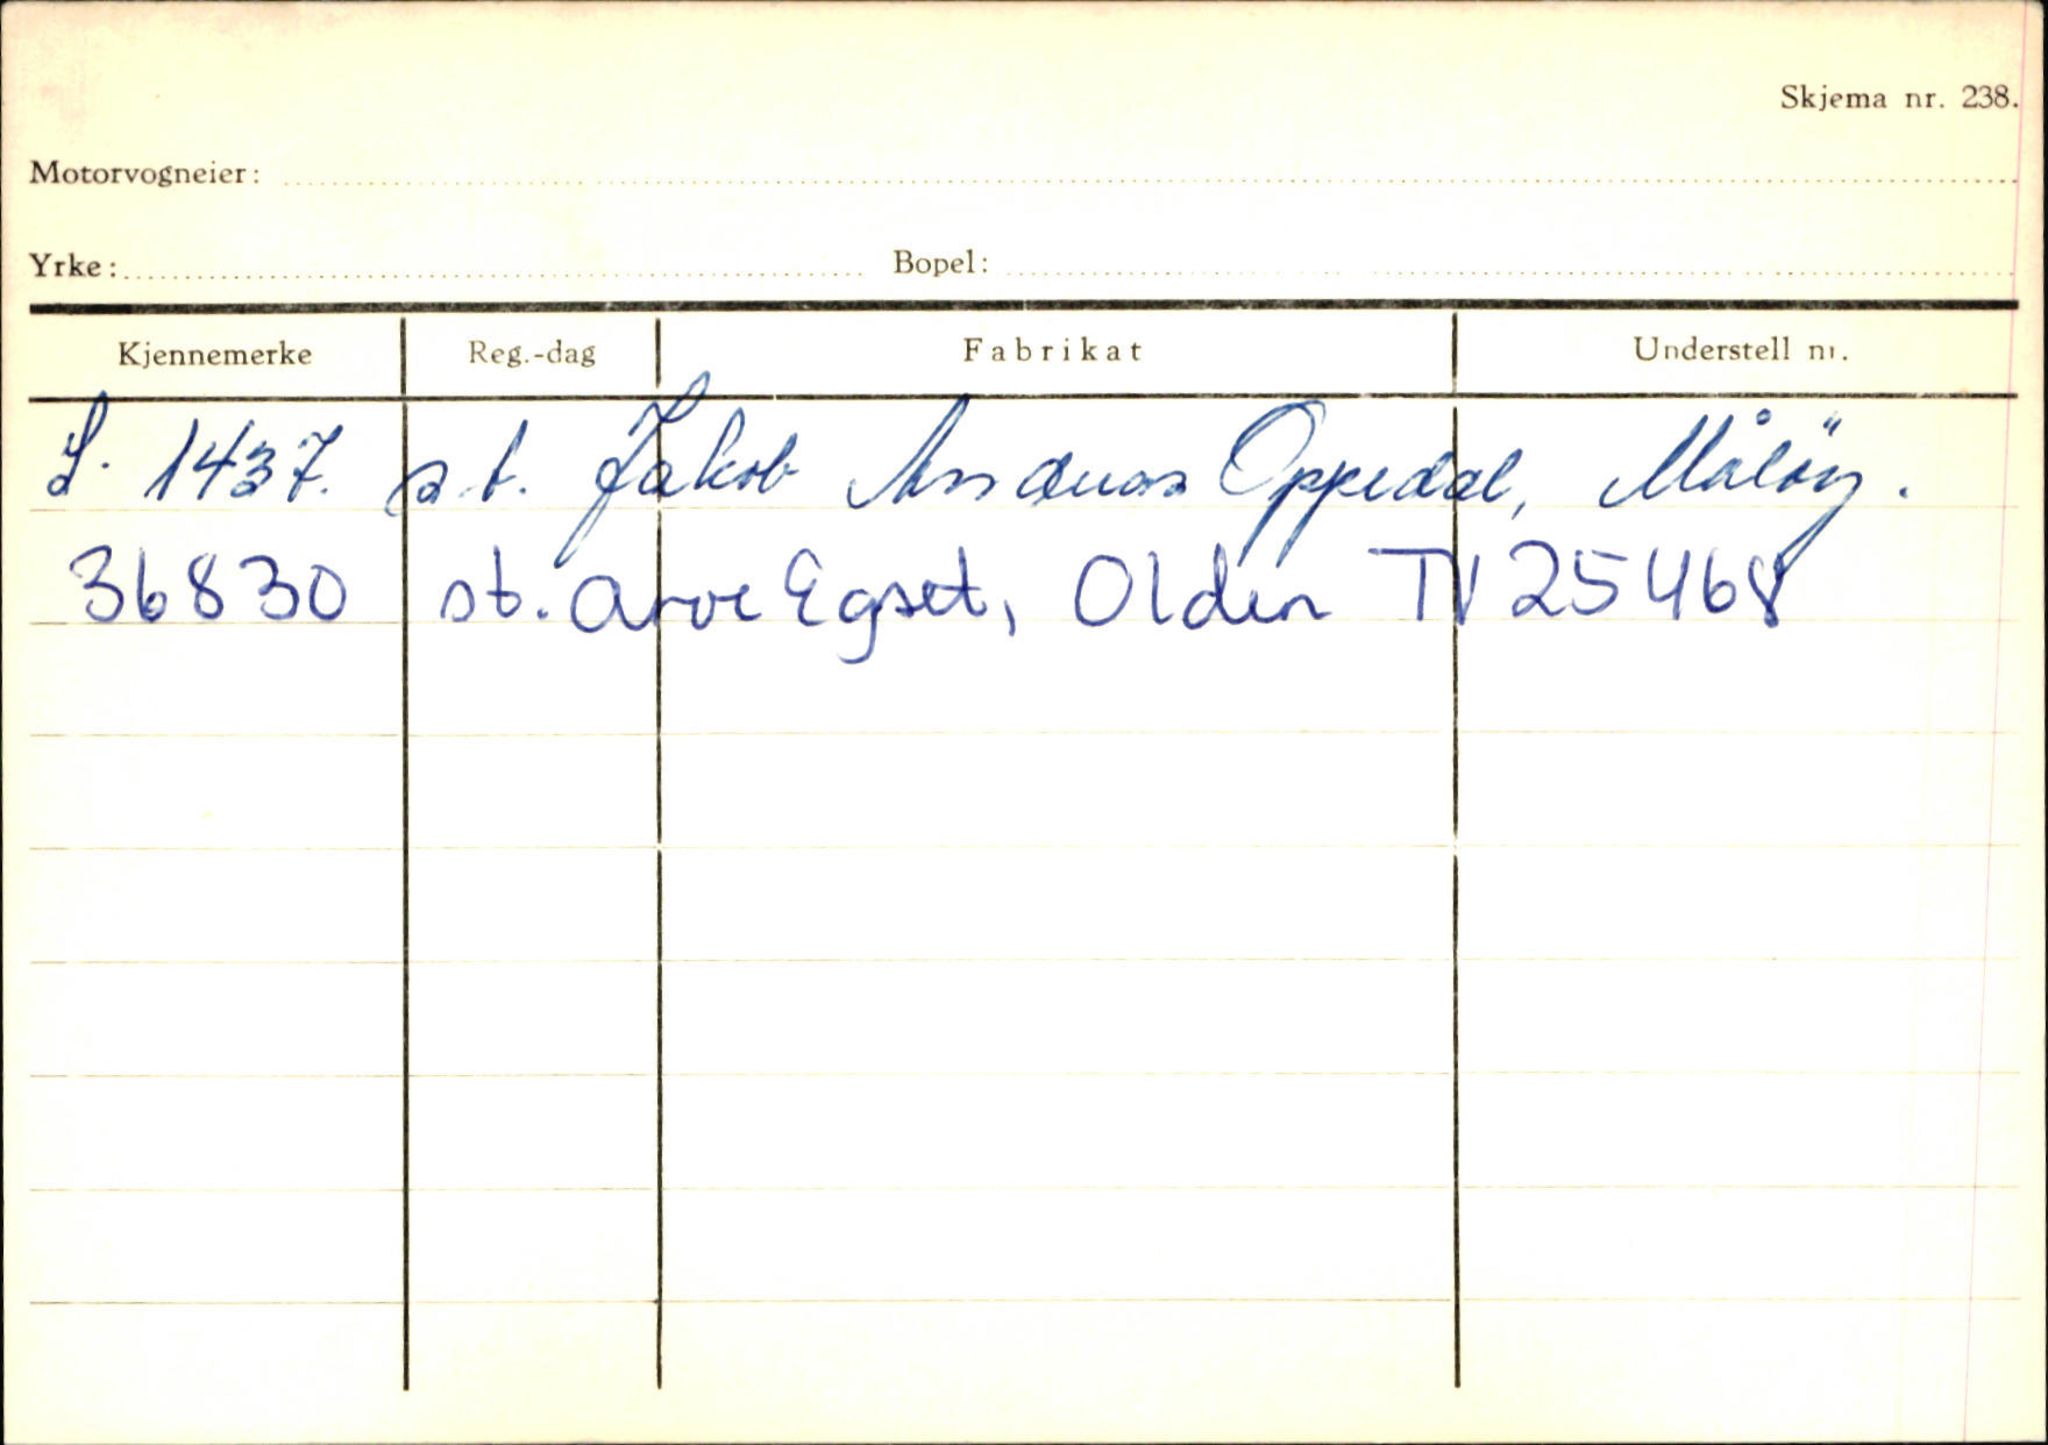 Skjema nr. 238.
Motorvogneier:
Yrke: Bopel:
Kjennemerke Reg.-dag Fabrikat Understell nr.
S. 1437. s.t. Jakob Andreas Oppedal, Målöy.
36830 st. Arve Egset, Olden TV 25468